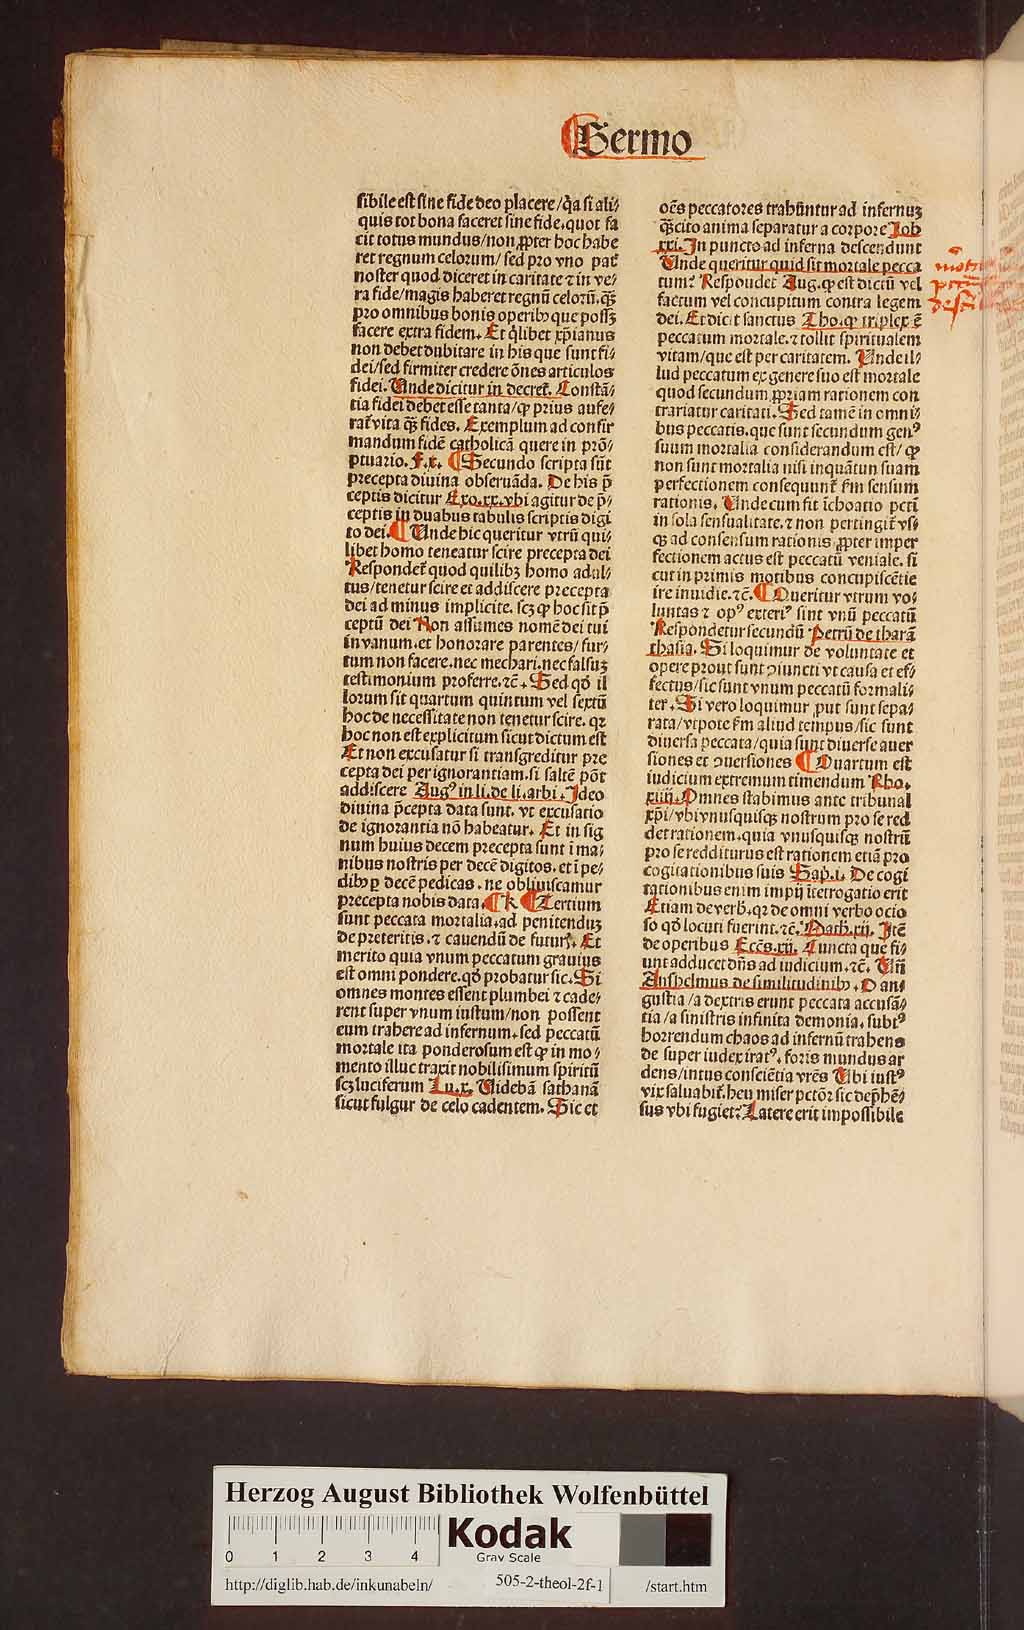 Sermo
sibile est sine fide deo placere/q̃a si ali/
quis tot bona faceret sine fide.quot fa
cit totus mundus/non ꝓpter hoc habe
ret regnum celorum/sed pro vno pat̃
noster quod diceret in caritate ⁊ in ve/
ra fide/magis haberet regnũ celorũ.q̃ꝫ
pro omnibus bonis operibꝰ que possꝫ
facere extra fidem. Et q̃libet xp̃ianus
non debet dubitare in his que sunt fi/
dei/sed firmiter credere õnes articulos
fidei. Unde dicitur in decret̃. Constã/
tia fidei debet esse tanta/ꝙ prius aufe/
rat̃ vita q̃ꝫ fides. Exemplum ad confir
mandum fidẽ catholicã quere in prõ/
ptuario. F.x. ¶ Secundo scripta sũt
precepta diuina obseruãda. De his p̃
ceptis dicitur Exo.xx.vbi agitur de p̃/
ceptis in duabus tabulis scriptis digi
to dei. ¶ Unde hic queritur vtrũ qui/
libet homo teneatur scire precepta dei
Respondet̃ quod quilibꝫ homo adul/
tus/tenetur scire et addiscere precepta
dei ad minus implicite. scꝫ ꝙ hoc sit p̃
ceptũ dei Non assumes nomẽ dei tui
in vanum.et honorare parentes/fur/
tum non facere.nec mechari.nec falsuꝫ
testimonium proferre.⁊c̃. Sed qđ il
lorum sit quartum quintum vel sextũ
hoc de necessitate non tenetur scire. qꝛ
hoc non est explicitum sicut dictum est
Et non excusatur si transgreditur pre
cepta dei per ignorantiam.si saltẽ põt
addiscere Augꝰ in li.de li.arbi. Ideo
diuina p̃cepta data sunt. vt excusatio
de ignorantia nõ habeatur. Et in sig
num huius decem precepta sunt ĩ ma/
nibus nostris per decẽ digitos. et ĩ pe/
dibꝰ ꝑ decẽ pedicas . ne obliuiscamur
precepta nobis data. ¶ k ¶ Tertium
sunt peccata mortalia.ad penitenduꝫ
de preteritis.⁊ cauendũ de futuris. Et
merito quia vnum peccatum grauius
est omni pondere.qđ probatur sic. Si
omnes montes essent plumbei ⁊ cade/
rent super vnum iustum/non possent
eum trahere ad infernum.sed peccatũ
mortale ita ponderosum est ꝙ in mo/
mento illuc traxit nobilissimum spiritũ
scꝫ luciferum Lu.x. Uidebã sathanã
sicut fulgur de celo cadentem. Sic et
oẽs peccatores trahũntur ad infernuꝫ
q̃ꝫ cito anima separatur a corpore Job
xxi. In puncto ad inferna descendunt
Unde queritur quid sit mortale pecca
tum? Respondet̃ Aug.ꝙ est dictũ vel
factum vel concupitum contra legem
dei. Et dicit sanctus Tho.ꝙ triplex ẽ
peccatum mortale.⁊ tollit spiritualem
vitam/que est per caritatem. Unde il/
lud peccatum ex genere suo est mortale
quod secundum ꝓpriam rationem con
trariatur caritati. Sed tamẽ in omni/
bus peccatis.que sunt secundum genꝰ
suum mortalia considerandum est/ꝙ
non sunt mortalia nisi inquãtum suam
perfectionem consequunt̃ fm sensum
rationis. Unde cum fit ĩchoatio pcti
in sola sensualitate.⁊ non pertingit̃ vs/
qꝫ ad consensum rationis ꝓpter imper
fectionem actus est peccatũ veniale. si
cut in primis motibus concupiscẽtie
ire inuidie.⁊c̃. ¶ Queritur vtrum vo/
luntas ⁊ opꝰ exteriꝰ sint vnũ peccatũ
Respondetur secundũ Petrũ de tharã
thasia. Si loquimur de voluntate et
opere prout sunt ꝯiuncti vt causa et ef/
fectus/sic sunt vnum peccatũ formali/
ter. Si vero loquimur ꝓut sunt sepa/
rata/vtpote fm aliud tempus/sic sunt
diuersa peccata/quia sunt diuerse auer
siones et ꝯuersiones ¶ Quartum est
iudicium extremum timendum Rho.
xiiij. Omnes stabimus ante tribunal
xp̃i/vbi vnusquisqꝫ nostrum pro se red
det rationem.quia vnusquisqꝫ nostrũ
pro se redditurus est rationem etiã pro
cogitationibus suis Sap.i. De cogi
tationibus enim impij ĩterrogatio erit
Etiam de verb̃. qꝛ de omni verbo ocio
so qđ locuti fuerint.⁊c̃. Math.xij. Itẽ
de operibus Eccs̃.xij. Cuncta que fi/
unt adducet dñs ad iudicium.⁊c̃. Uñ
Anshelmus de similitudinibꝰ. O an/
gustia/a dextris erunt peccata accusã/
tia/a sinistris infinita demonia. subtꝰ
horrendum chaos ad infernũ trahens
de super iudex iratꝰ. foris mundus ar
dens/intus consciẽtia vrẽs Ubi iustꝰ
vix saluabit̃.heu miser pctõꝛ sic dep̃hẽ/
sus vbi fugiet? Latere erit impossibile
Herzog August Bibliothek Wolfenbüttel
0 1 2 3 4
Kodak
Gray Scale
http://diglib.hab.de/inkunabeln/
505-2-theol-2f-1
/start.htm